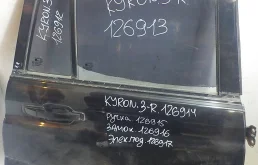 KYRON.
126912
KYRON.3-R
126913
KYRON.3-R 126914
ручка 126915
замок 126916
элект.под 126917